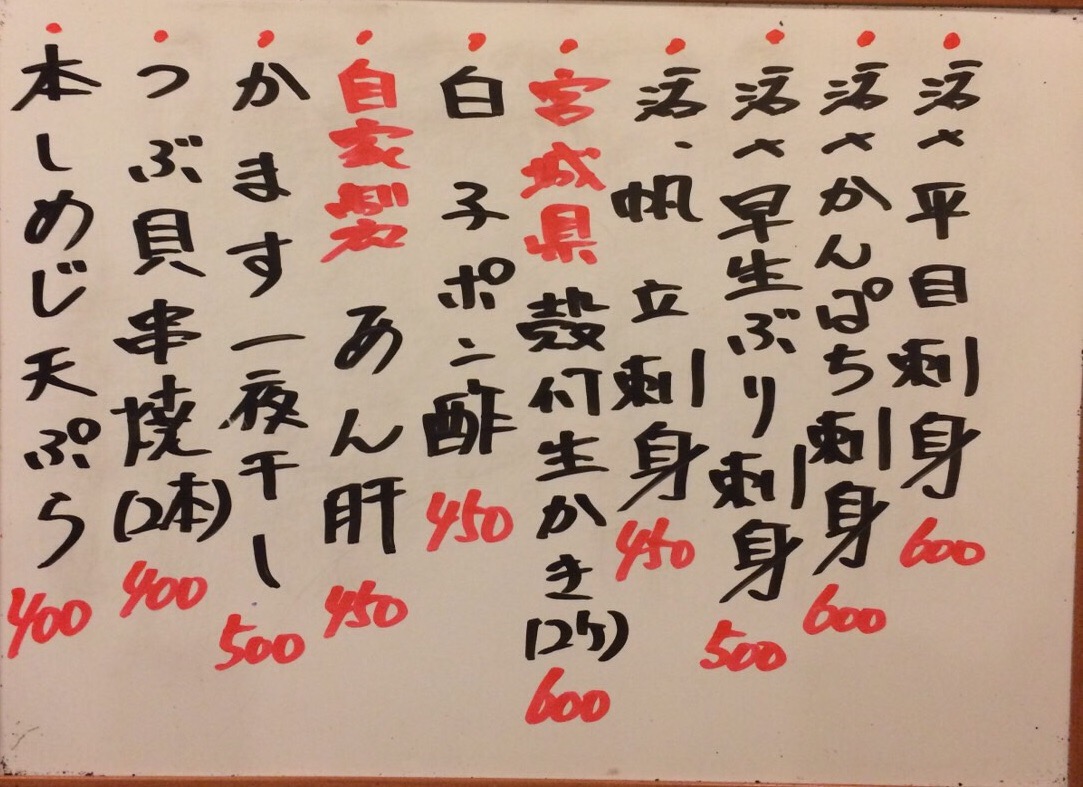 ・活〆平目刺身 600
・活〆かんぱち刺身 600
・活〆早生ぶり刺身 500
・活・帆立刺身 450
・宮城県殻付生かき(2ケ) 600
・白子ポン酢 450
・自家製あん肝 450
・かます一夜干し 500
・つぶ貝串焼(2本) 400
・本しめじ天ぷら 400